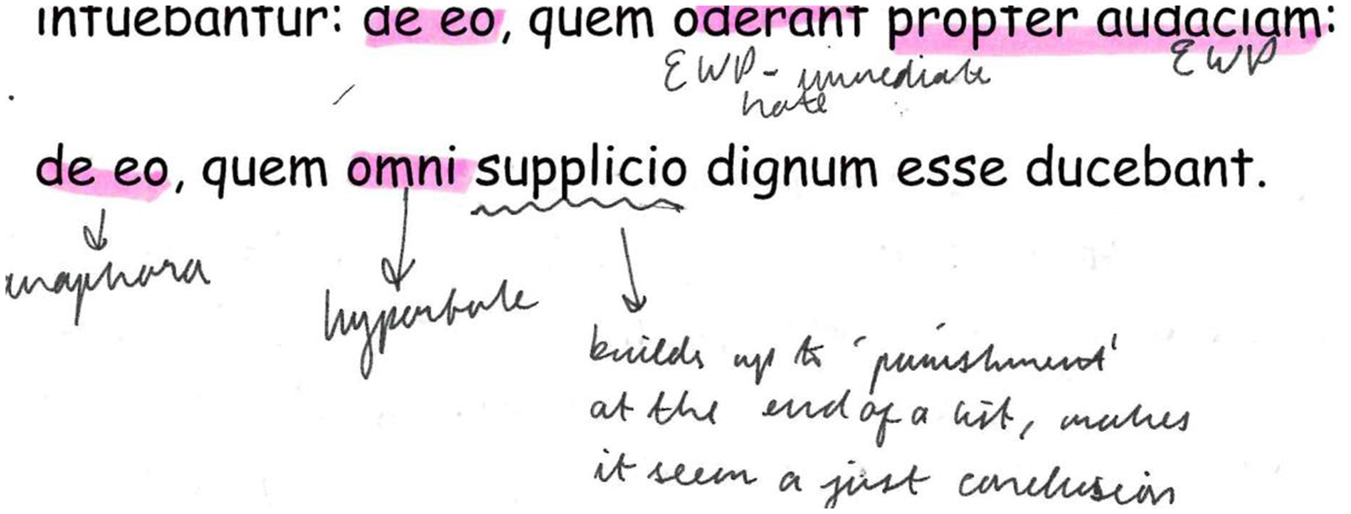 intuebantur: de eo, quem oderant propter audaciam:
EWP - immediate
hate
EWP
de eo, quem omni supplicio dignum esse ducebant.
anaphora
hyperbole
builds up to 'punishment'
at the end of a list, makes
it seem a just conclusion